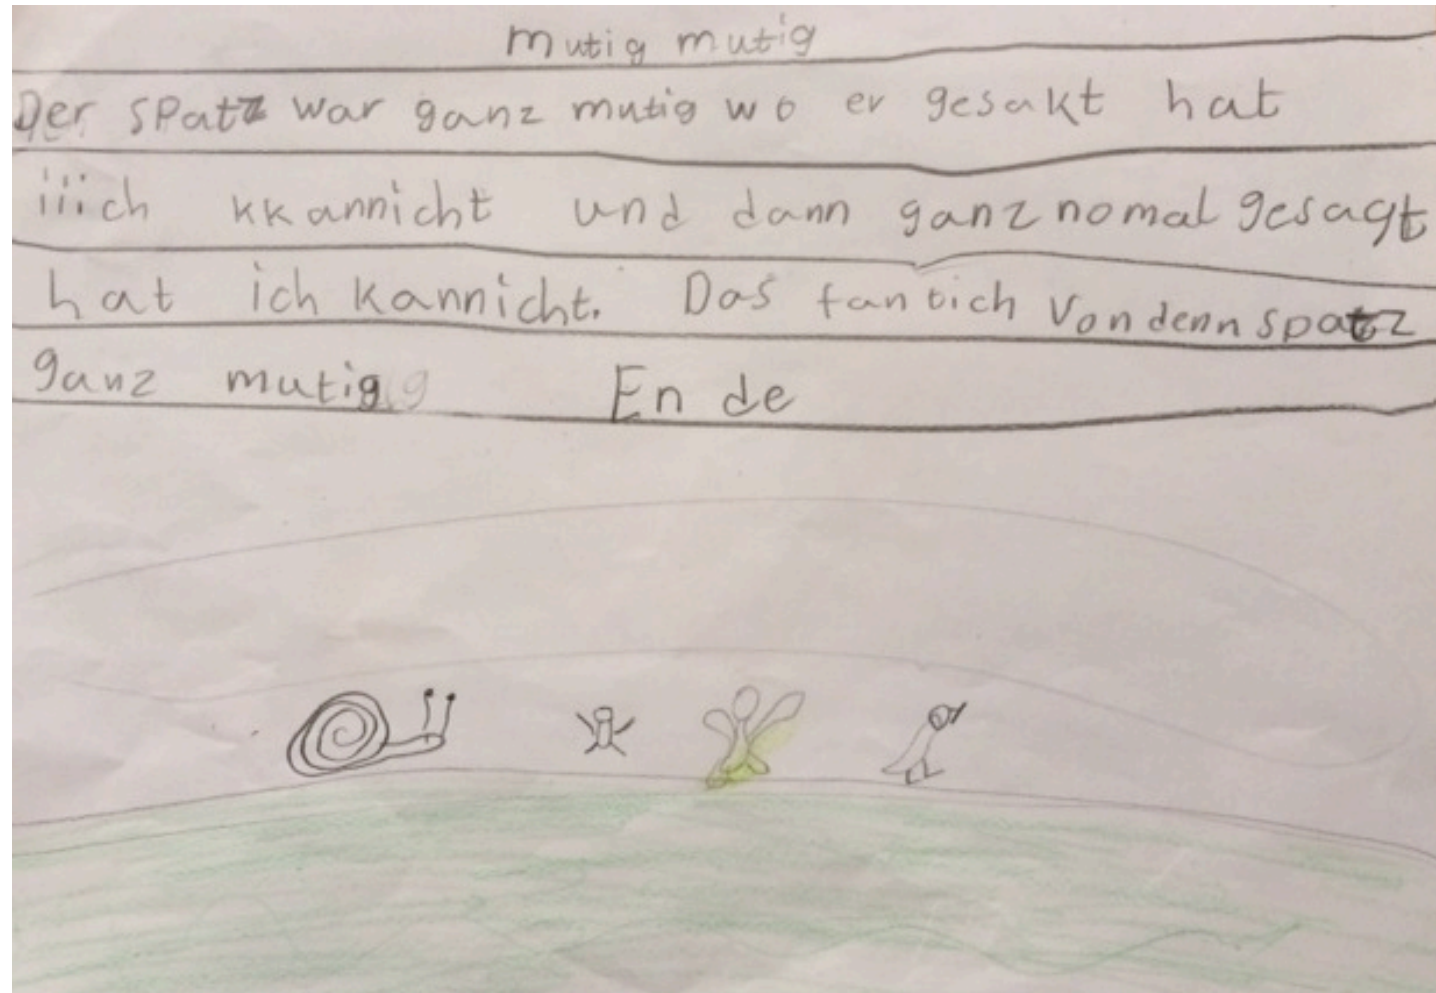 mutig mutig
Der spatz war ganz mutig wo er gesakt hat
iiich kkannicht und dann ganz nomal gesagt
hat ich kannicht. Das fantich von denn spatz
ganz mutig Ende